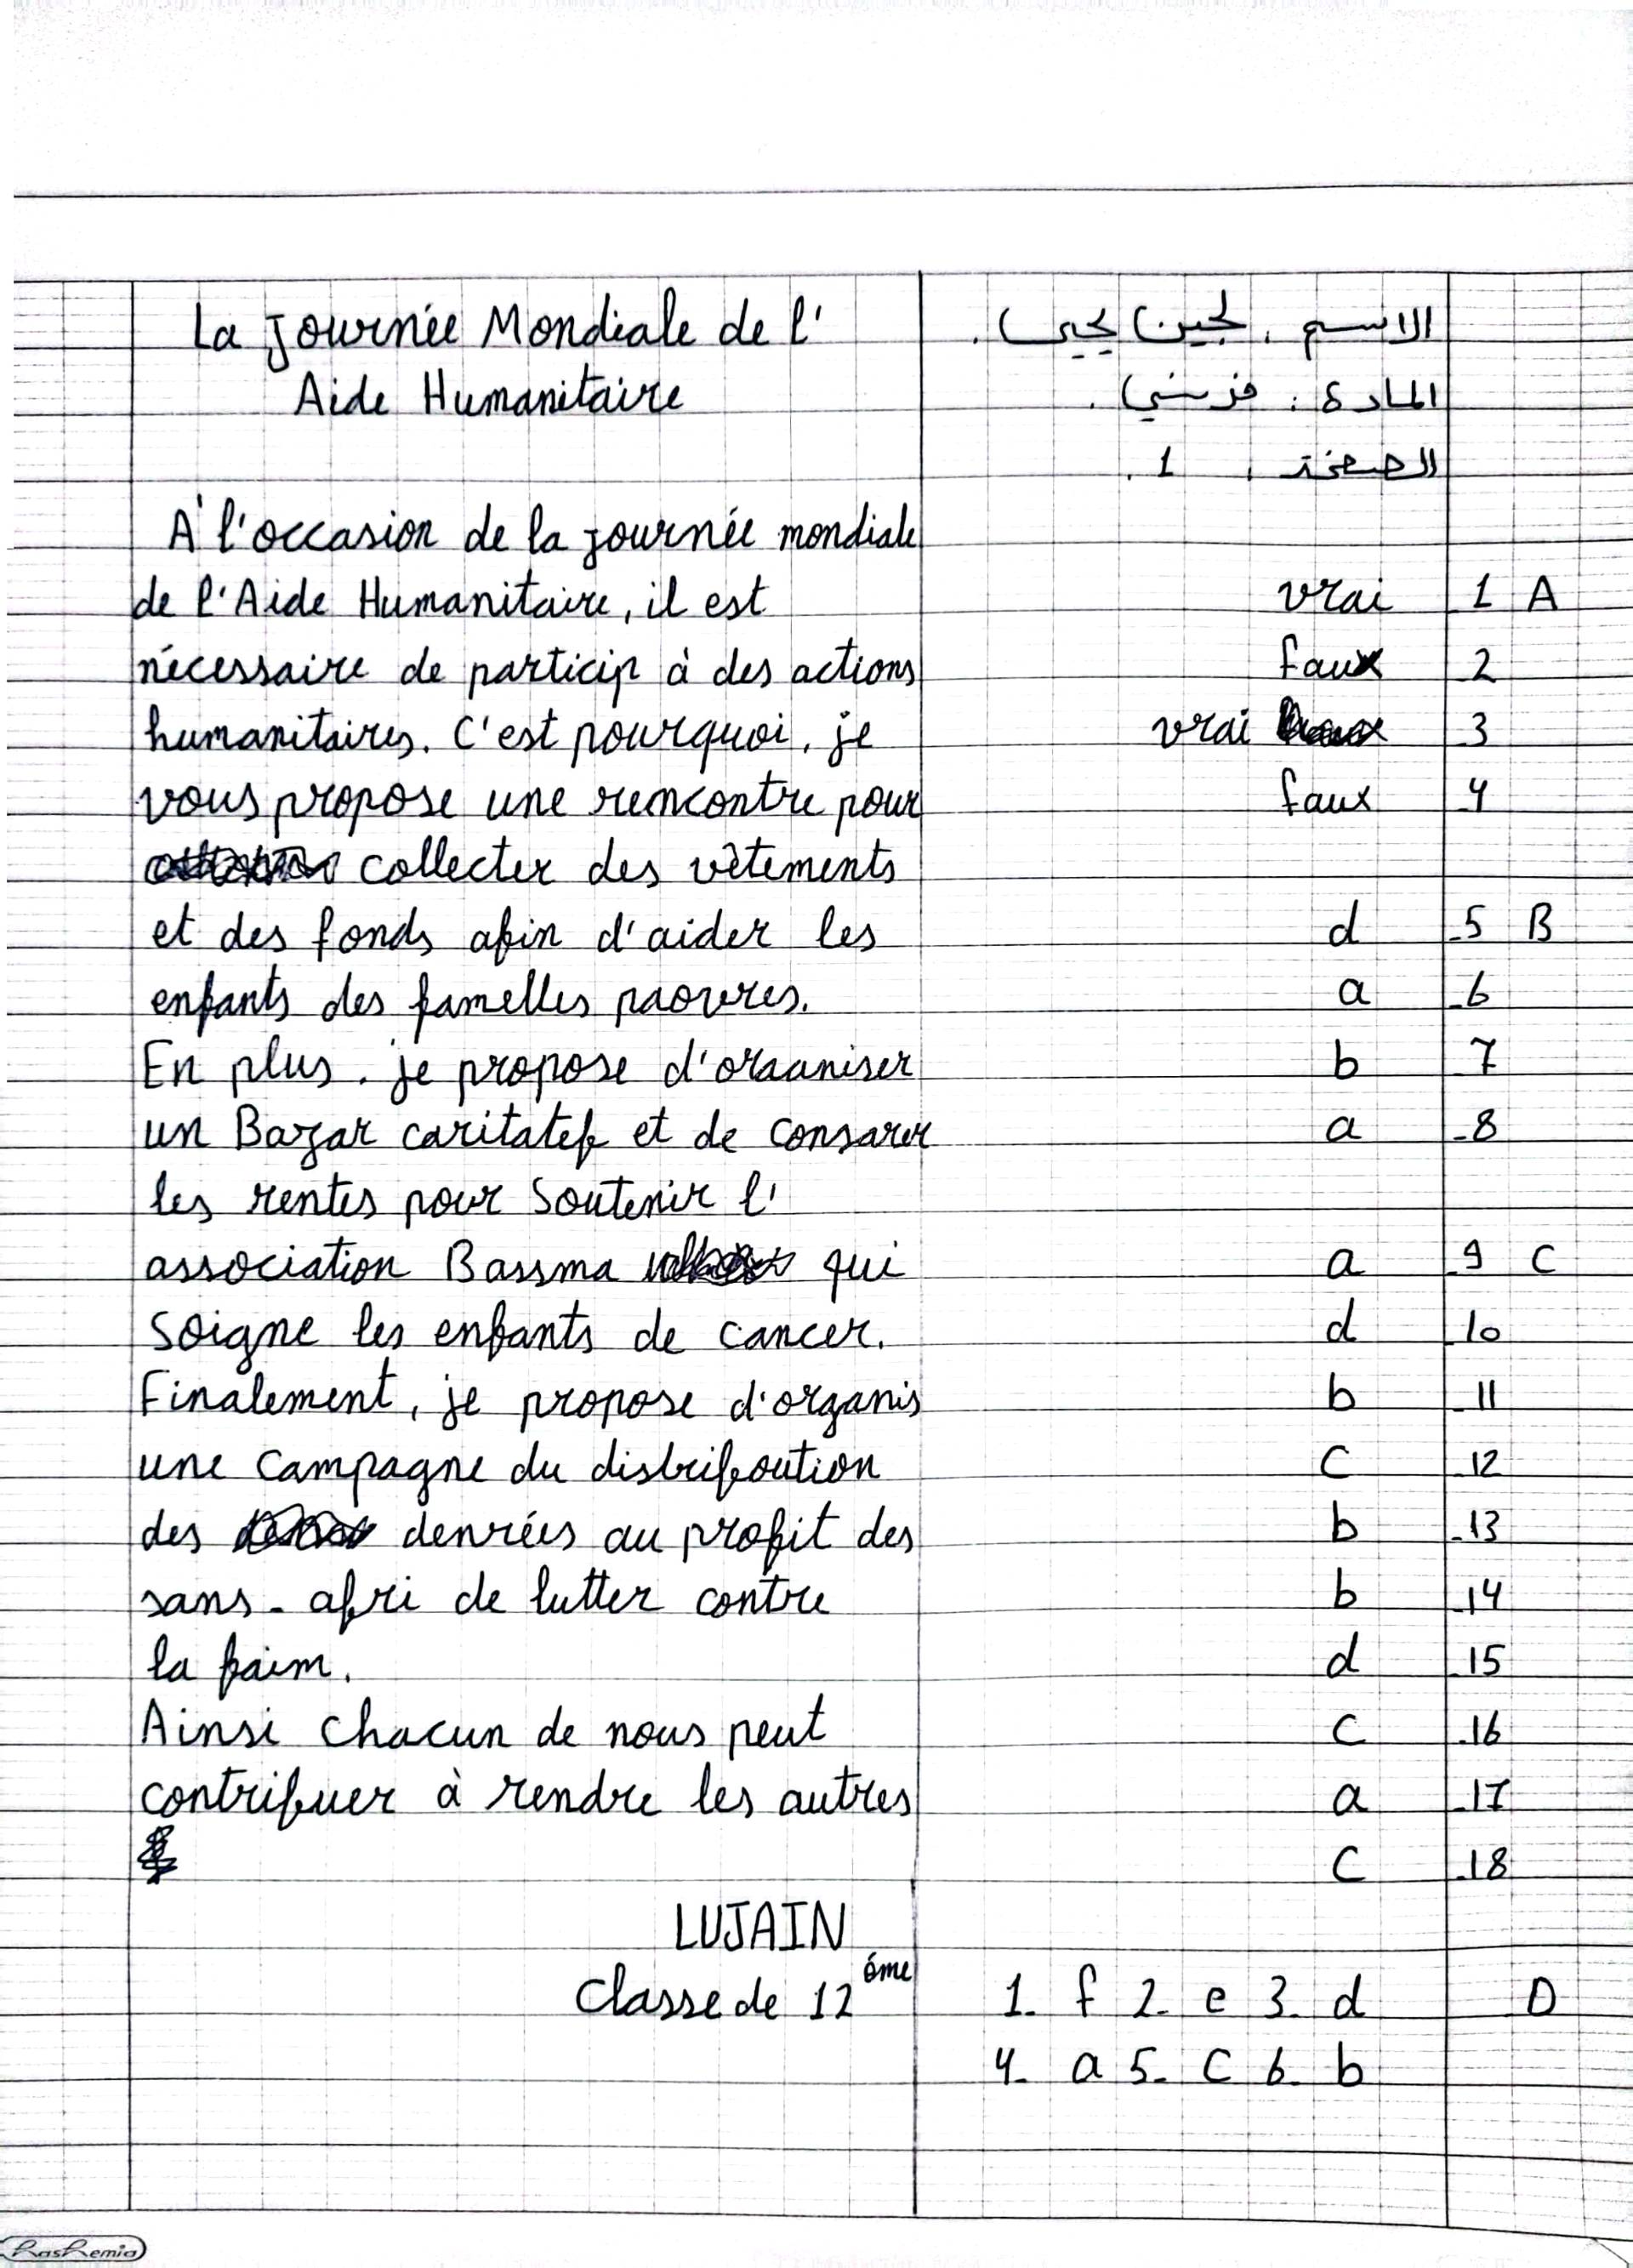 الاسم : لجين يحيى .
المادة : فرنسي .
الصفحة : 1 .
A 1 vrai
2 faux
3 vrai
4 faux
B 5 d
6 a
7 b
8 a
C 9 a
10 d
11 b
12 c
13 b
14 b
15 d
16 c
17 a
18 c
D 1. f 2. e 3. d
4. a 5. c 6. b
La Journée Mondiale de l'
Aide Humanitaire
A l'occasion de la journée mondiale
de l'Aide Humanitaire, il est
nécessaire de particip à des actions
humanitaires. C'est pourquoi, je
vous propose une rencontre pour
collecter des vêtements
et des fonds afin d'aider les
enfants des famelles paovres.
En plus, je propose d'oraaniser
un Bazar caritatef et de consarer
les rentes pour soutenir l'
association Bassma qui
soigne les enfants de cancer.
Finalement, je propose d'organis
une campagne du distriboution
des denrées au profit des
sans-abri de lutter contre
la faim.
Ainsi chacun de nous peut
contribuer à rendre les autres
LUJAIN
Classe de 12 éme
RasRemia